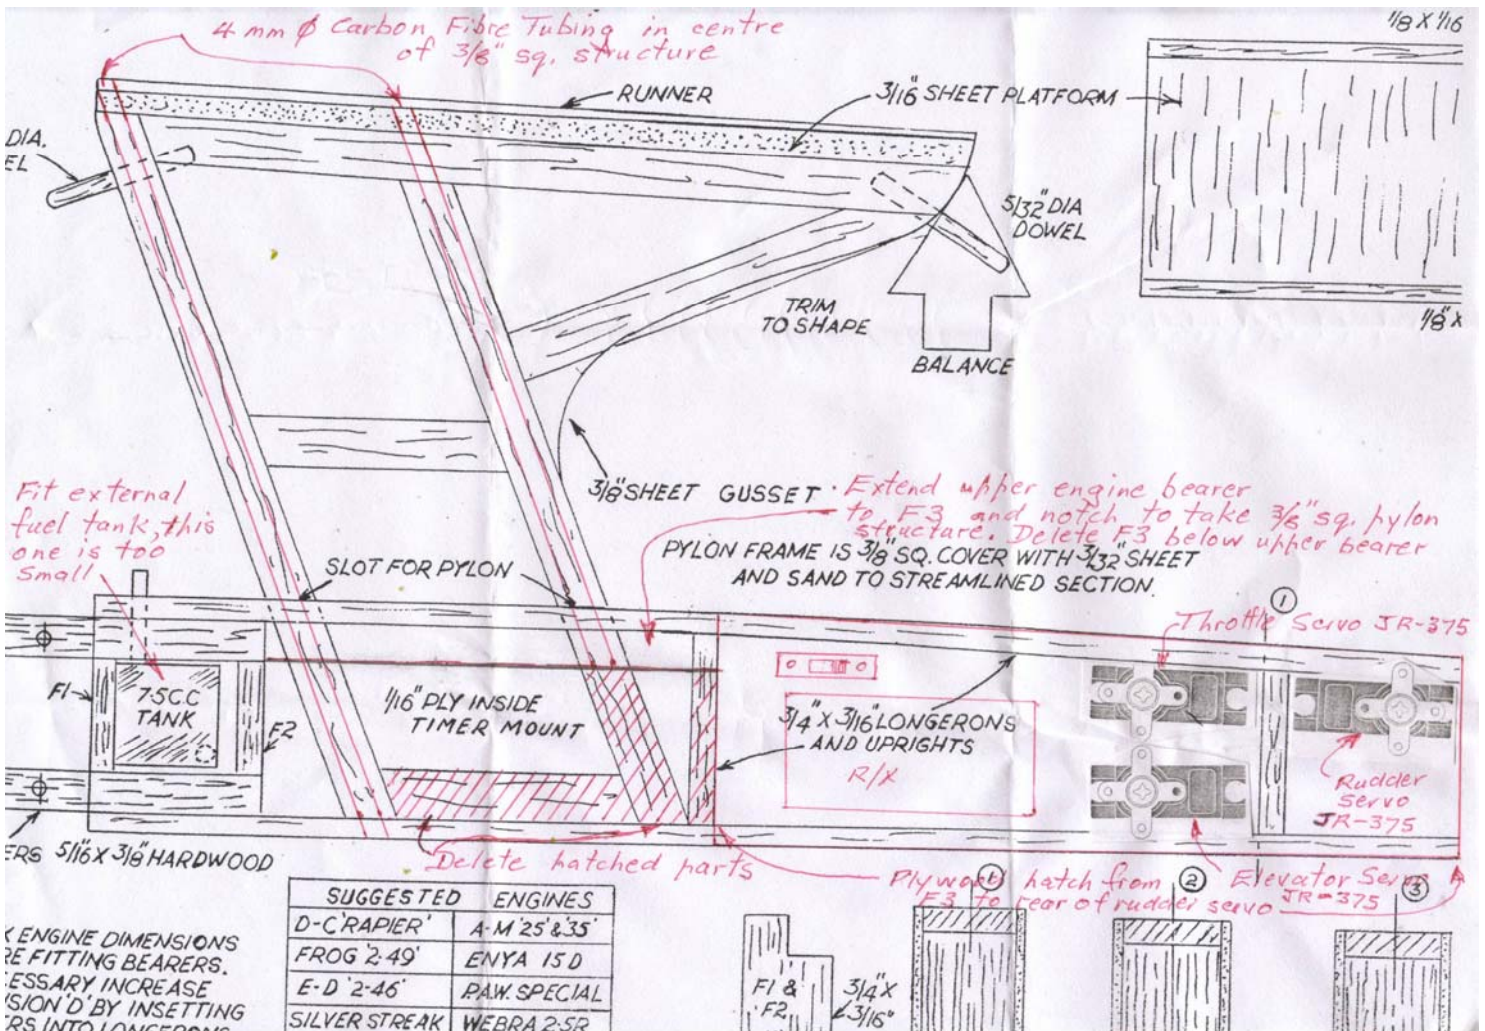 4 mm ϕ Carbon Fibre Tubing in centre
of 3/8" sq. structure
1/8 X 1/16
RUNNER
3/16 SHEET PLATFORM
DIA.
EL
5/32" DIA
DOWEL
TRIM
TO SHAPE
1/8" X
BALANCE
3/8" SHEET GUSSET
Extend upper engine bearer
to F3 and notch to take 3/8" sq. pylon
structure. Delete F3 below upper bearer
Fit external
fuel tank, this
one is too
small
PYLON FRAME IS 3/8 SQ. COVER WITH 3/32" SHEET
AND SAND TO STREAMLINED SECTION.
SLOT FOR PYLON
1
Throttle Servo JR-375
F1
7·5C.C
TANK
F2
1/16" PLY INSIDE
TIMER MOUNT
3/4" X 3/16" LONGERONS
AND UPRIGHTS
R/X
Rudder
Servo
JR-375
ERS 5/16 X 3/8 HARDWOOD
Delete hatched parts
Plywood hatch from
F3 to rear of rudder servo
Elevator Servo
JR-375
1
2
3
SUGGESTED ENGINES
D-C 'RAPIER' A-M '25 & 35'
FROG '2·49' ENYA 15D
E-D '2·46' P.A.W. SPECIAL
SILVER STREAK WEBRA 2·5R
K ENGINE DIMENSIONS
RE FITTING BEARERS.
ESSARY INCREASE
SION 'D' BY INSETTING
RS INTO LONGERONS
F1 &
F2
3/4" X
3/16"